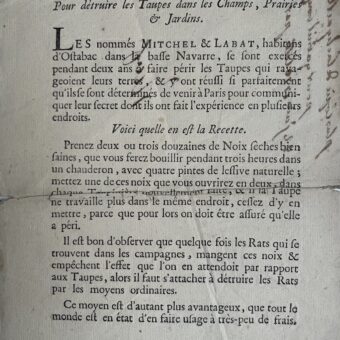 Pour détruire les Taupes dans les Champs, Prairies
& Jardins.
LES nommés MITCHEL & LABAT, habitans
d'Ostabac dans la basse Navarre, se sont exercés
pendant deux ans à faire périr les Taupes qui rava-
geoient leurs terres, & y ont réussi si parfaitement
qu'ils se sont déterminés de venir à Paris pour communi-
quer leur secret dont ils ont fait l'expérience en plusieurs
endroits.
Voici quelle en est la Recette.
Prenez deux ou trois douzaines de Noix séches bien
saines, que vous ferez bouillir pendant trois heures dans
un chauderon, avec quatre pintes de lessive naturelle;
mettez une de ces noix que vous ouvrirez en deux, dans
chaque Taupiere nouvellement faite, & si la Taupe
ne travaille plus dans le même endroit, cessez d'y en
mettre, parce que pour lors on doit être assuré qu'elle
a péri.
Il est bon d'observer que quelque fois les Rats qui se
trouvent dans les campagnes, mangent ces noix &
empêchent l'effet que l'on en attendoit par rapport
aux Taupes, alors il faut s'attacher à détruire les Rats
par les moyens ordinaires.
Ce moyen est d'autant plus avantageux, que tout le
monde est en état d'en faire usage à très-peu de frais.